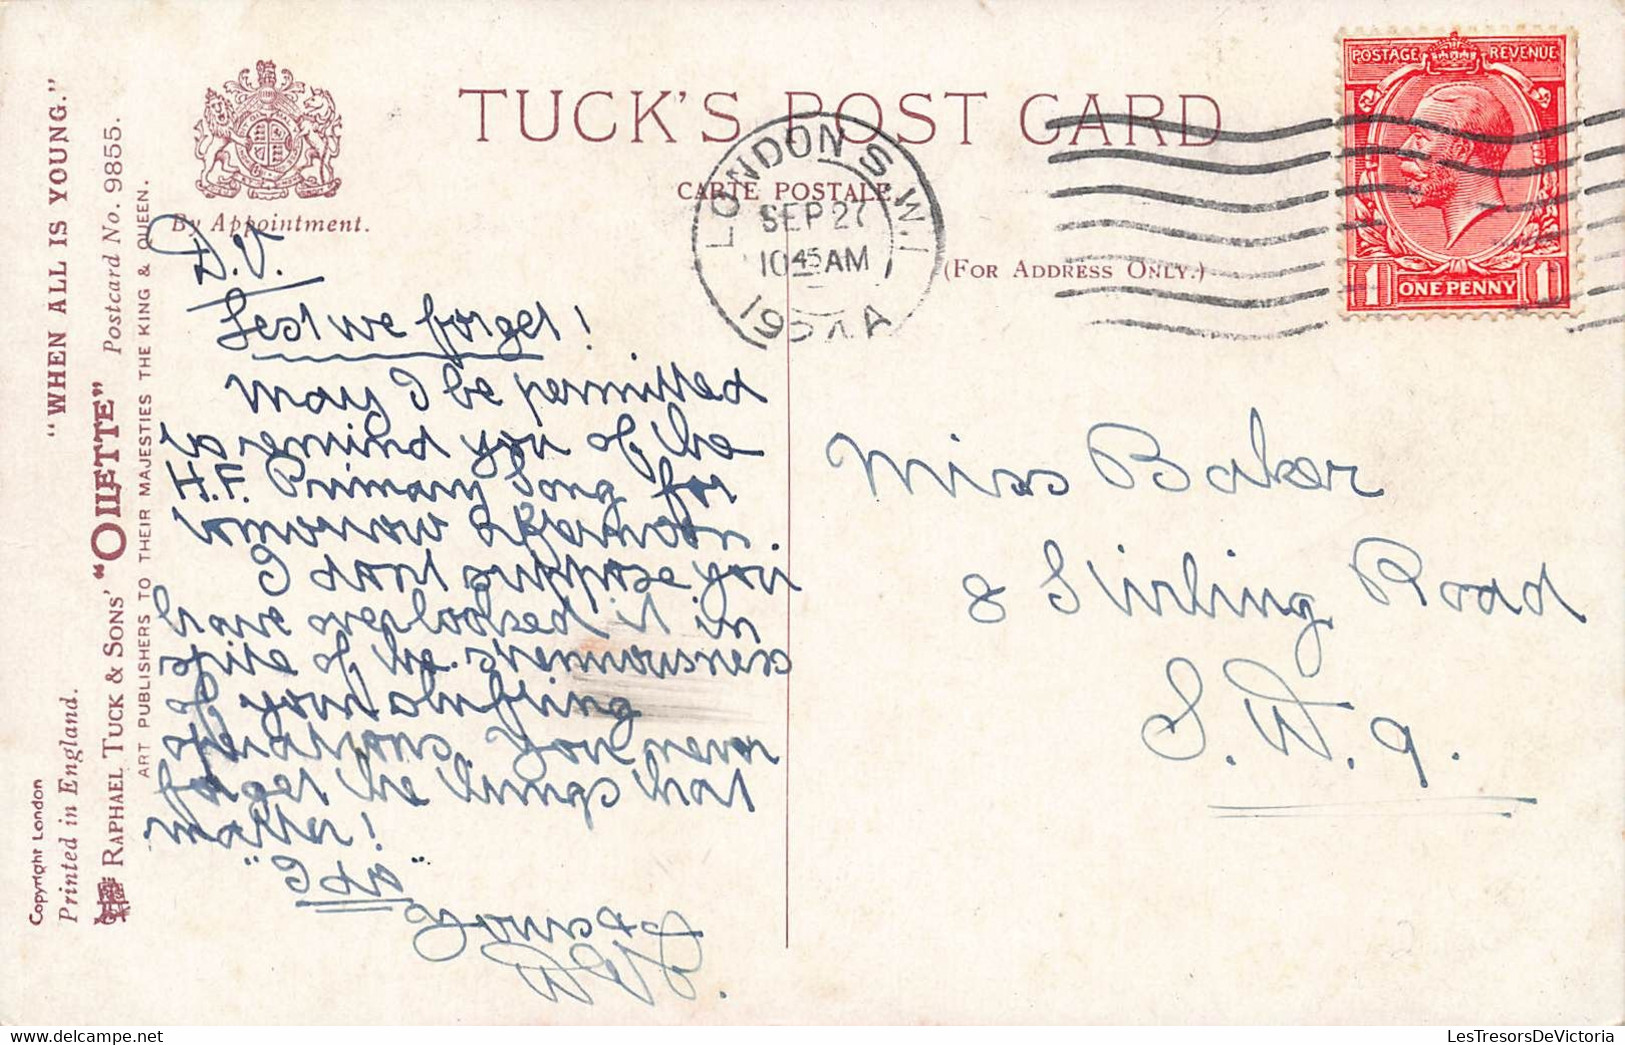 TUCK'S POST CARD
CARTE POSTALE.
(FOR ADDRESS ONLY.)
By Appointment.
"WHEN ALL IS YOUNG."
RAPHAEL TUCK & SONS' "OILETTE" Postcard No. 9855.
ART PUBLISHERS TO THEIR MAJESTIES THE KING & QUEEN.
Copyright London
Printed in England.
LONDON S.W.1
SEP 27
10 45 AM
POSTAGE REVENUE
1 ONE PENNY 1
D.V.
Lest we forget!
May I be permitted
to remind you of the
H.F. Primary Song for
tomorrow afternoon.
I dont suppose you
have overlooked it in
spite of the strenuousness
of your
operations. You never
forget the things that
matter!
"I do"
Yours
Miss Baker
8 Stirling Road
S.W.9.
LesTresorsDeVictoria